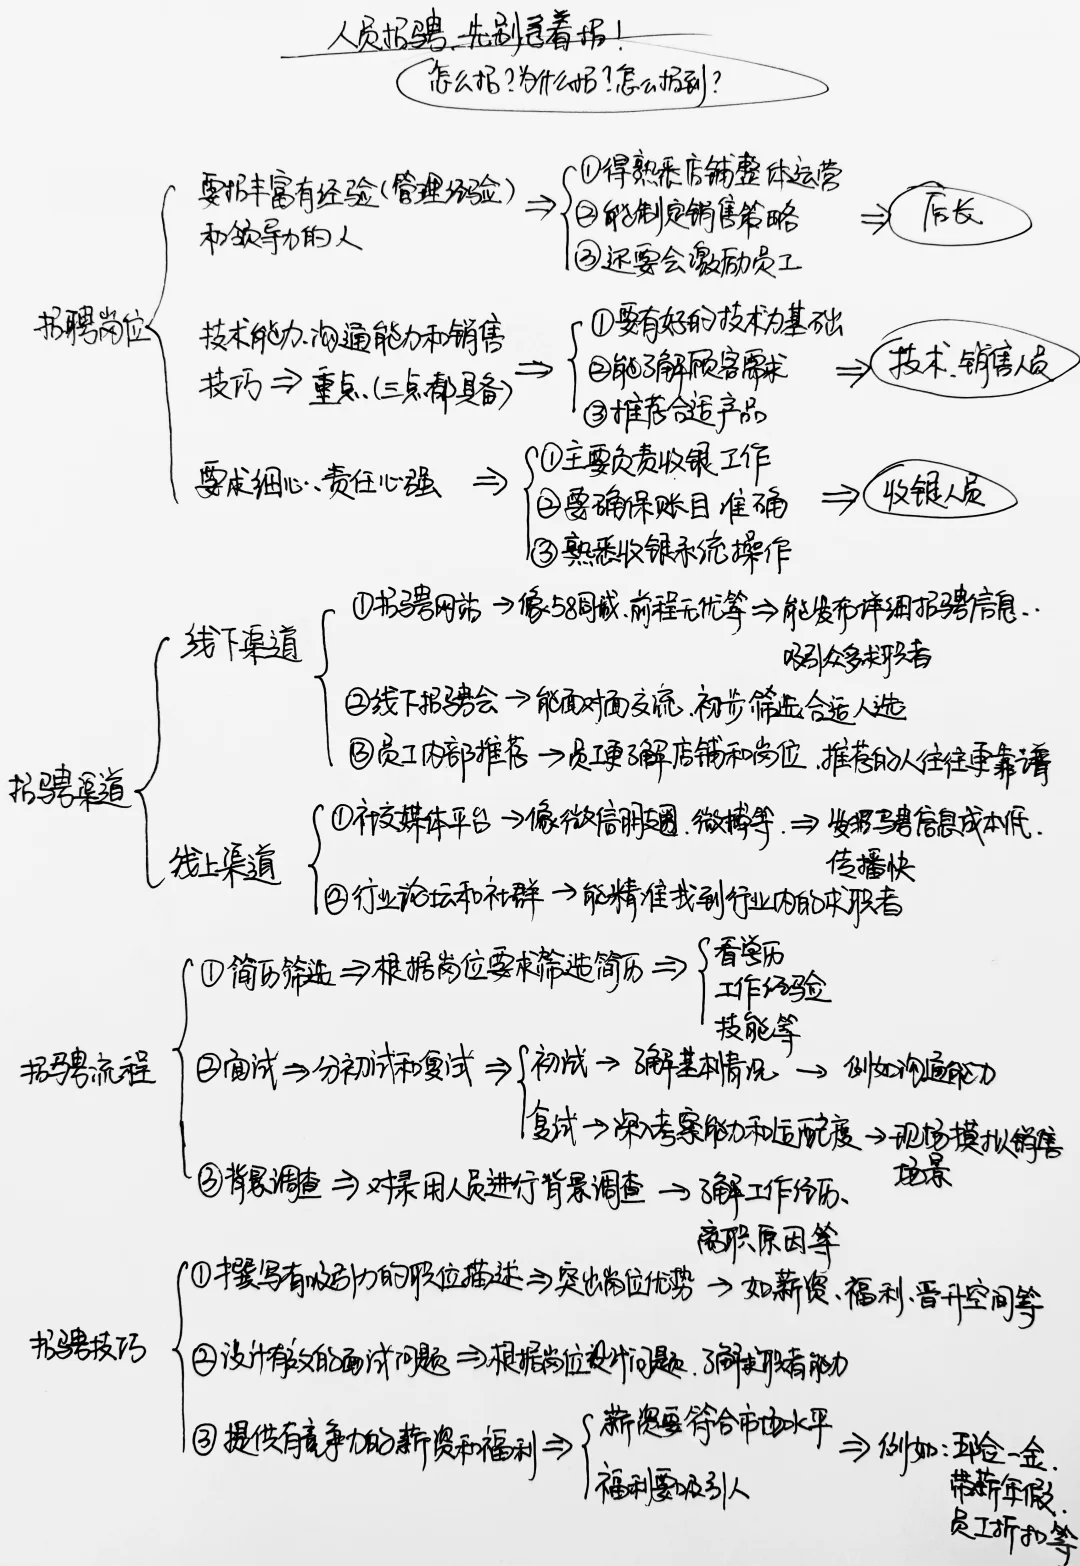 人员招聘、先别急着招!
怎么招?为什么招?怎么招到?
招聘岗位
要招丰富有经验(管理经验)
和领导力的人
⇒
①得熟悉店铺整体运营
②能制定销售策略
③还要会激励员工
⇒ 店长
技术能力、沟通能力和销售
技巧⇒重点、(三点都具备)
⇒
①要有好的技术为基础
②能了解顾客需求
③推荐合适产品
⇒ 技术、销售人员
要求细心、责任心强 ⇒
①主要负责收银工作
②要确保账目准确
③熟悉收银系统操作
⇒ 收银人员
招聘渠道
线下渠道
①招聘网站→像58同城、前程无忧等⇒能发布详细招聘信息、
吸引众多求职者
②线下招聘会→能面对面交流、初步筛选合适人选
③员工内部推荐→员工更了解店铺和岗位、推荐的人往往更靠谱
线上渠道
①社交媒体平台→像微信朋友圈、微博等、⇒发招聘信息成本低、
传播快
②行业论坛和社群→能精准找到行业内的求职者
招聘流程
①简历筛选⇒根据岗位要求筛选简历⇒
看学历
工作经验
技能等
②面试⇒分初试和复试⇒
初试→了解基本情况→例如沟通能力
复试→深入考察能力和适配度→现场模拟销售
场景
③背景调查⇒对录用人员进行背景调查→了解工作经历、
离职原因等
招聘技巧
①撰写有吸引力的职位描述⇒突出岗位优势→如薪资、福利、晋升空间等
②设计有效的面试问题⇒根据岗位设计问题、了解求职者能力
③提供有竞争力的薪资和福利⇒
薪资要符合市场水平
福利要吸引人
⇒例如:五险一金、
带薪年假、
员工折扣等